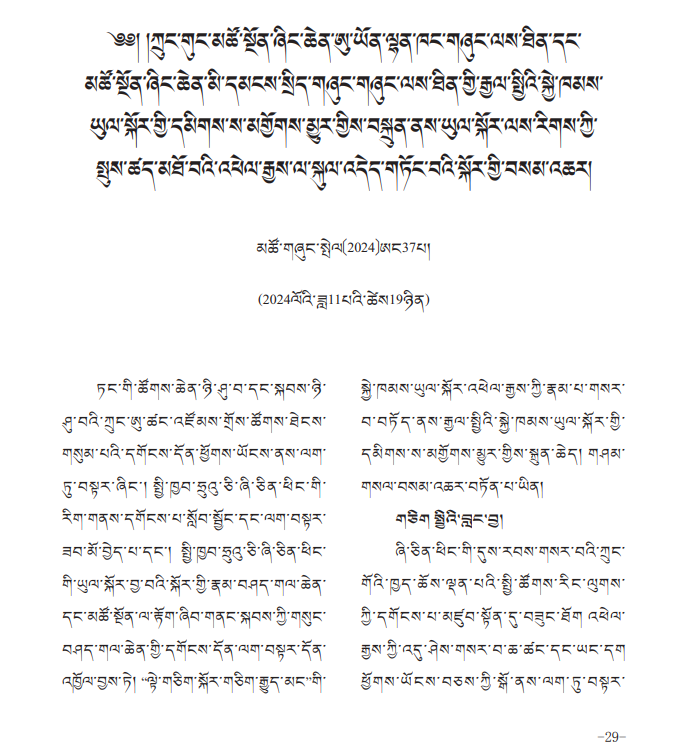 ༄༅། །ཀྲུང་གུང་མཚོ་སྔོན་ཞིང་ཆེན་ཨུ་ཡོན་ལྷན་ཁང་གཞུང་ལས་ཐིན་དང་
མཚོ་སྔོན་ཞིང་ཆེན་མི་དམངས་སྲིད་གཞུང་གཞུང་ལས་ཐིན་གྱི་རྒྱལ་སྤྱིའི་སྐྱེ་ཁམས་
ཡུལ་སྐོར་གྱི་དམིགས་ས་མགྱོགས་མྱུར་གྱིས་བསྐྲུན་ནས་ཡུལ་སྐོར་ལས་རིགས་ཀྱི་
སྤུས་ཚད་མཐོ་བའི་འཕེལ་རྒྱས་ལ་སྐུལ་འདེད་གཏོང་བའི་སྐོར་གྱི་བསམ་འཆར།
མཚོ་གཞུང་སྤེལ(2024)ཨང37པ།
(2024ལོའི་ཟླ11པའི་ཚེས19ཉིན)
ཏང་གི་ཚོགས་ཆེན་ཉི་ཤུ་བ་དང་སྐབས་ཉི་
ཤུ་བའི་ཀྲུང་ཨུ་ཚང་འཛོམས་གྲོས་ཚོགས་ཐེངས་
གསུམ་པའི་དགོངས་དོན་ཕྱོགས་ཡོངས་ནས་ལག་
ཏུ་བསྟར་ཞིང་། སྤྱི་ཁྱབ་ཧྲུའུ་ཅི་ཞི་ཅིན་ཕིང་གི་
རིག་གནས་དགོངས་པ་སློབ་སྦྱོང་དང་ལག་བསྟར་
ཟབ་མོ་བྱེད་པ་དང་། སྤྱི་ཁྱབ་ཧྲུའུ་ཅི་ཞི་ཅིན་ཕིང་
གི་ཡུལ་སྐོར་བྱ་བའི་སྐོར་གྱི་རྣམ་བཤད་གལ་ཆེན་
དང་མཚོ་སྔོན་ལ་རྟོག་ཞིབ་གནང་སྐབས་ཀྱི་གསུང་
བཤད་གལ་ཆེན་གྱི་དགོངས་དོན་ལག་བསྟར་དོན་
འཁྱོལ་བྱས་ཏེ། “ལྟེ་གཅིག་སྐོར་གཅིག་རྒྱུད་མང”གི་
སྐྱེ་ཁམས་ཡུལ་སྐོར་འཕེལ་རྒྱས་ཀྱི་རྣམ་པ་གསར་
བ་བཏོད་ནས་རྒྱལ་སྤྱིའི་སྐྱེ་ཁམས་ཡུལ་སྐོར་གྱི་
དམིགས་ས་མགྱོགས་མྱུར་གྱིས་སྐྲུན་ཆེད། གཤམ་
གསལ་བསམ་འཆར་བཏོན་པ་ཡིན།
གཅིག སྤྱིའི་བླང་བྱ།
ཞི་ཅིན་ཕིང་གི་དུས་རབས་གསར་བའི་ཀྲུང་
གོའི་ཁྱད་ཆོས་ལྡན་པའི་སྤྱི་ཚོགས་རིང་ལུགས་
ཀྱི་དགོངས་པ་མཛུབ་སྟོན་དུ་བཟུང་ཐོག འཕེལ་
རྒྱས་ཀྱི་འདུ་ཤེས་གསར་བ་ཆ་ཚང་དང་ཡང་དག
ཕྱོགས་ཡོངས་བཅས་ཀྱི་སྒོ་ནས་ལག་ཏུ་བསྟར་
-29-